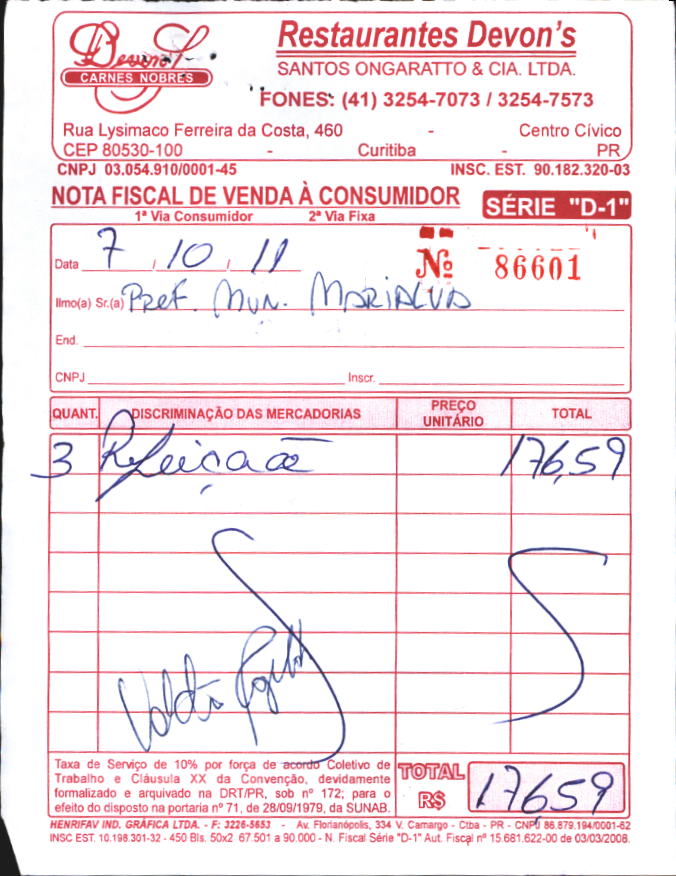 Devon's
CARNES NOBRES
Restaurantes Devon's
SANTOS ONGARATTO & CIA. LTDA.
FONES: (41) 3254-7073 / 3254-7573
Rua Lysimaco Ferreira da Costa, 460 - Centro Cívico
CEP 80530-100 - Curitiba - PR
CNPJ 03.054.910/0001-45 INSC. EST. 90.182.320-03
NOTA FISCAL DE VENDA À CONSUMIDOR SÉRIE "D-1"
1ª Via Consumidor 2ª Via Fixa
Data 7 / 10 / 11 Nº 86601
Ilmo(a) Sr.(a) Pref. Mun. Marialva
End.
CNPJ Inscr.
QUANT. DISCRIMINAÇÃO DAS MERCADORIAS PREÇO UNITÁRIO TOTAL
3 Refeição 176,59
Taxa de Serviço de 10% por força de acordo Coletivo de
Trabalho e Cláusula XX da Convenção, devidamente
formalizado e arquivado na DRT/PR, sob nº 172; para o
efeito do disposto na portaria nº 71, de 28/09/1979, da SUNAB.
TOTAL R$ 176,59
HENRIFAV IND. GRÁFICA LTDA. - F: 3226-5653 - Av. Florianópolis, 334 V. Camargo - Ctba - PR - CNPJ 86.879.194/0001-62
INSC EST. 10.198.301-32 - 450 Bls. 50x2 67.501 a 90.000 - N. Fiscal Série "D-1" Aut. Fiscal nº 15.681.622-00 de 03/03/2008.